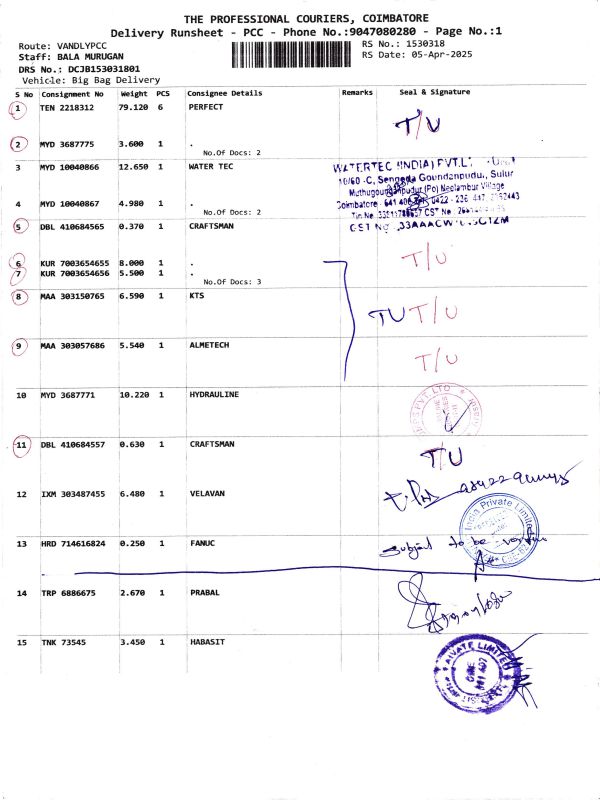 THE PROFESSIONAL COURIERS, COIMBATORE
Delivery Runsheet - PCC - Phone No.:9047080280 - Page No.:1
Route: VANDLYPCC
RS No.: 1530318
Staff: BALA MURUGAN
RS Date: 05-Apr-2025
DRS No.: DCJB153031801
Vehicle: Big Bag Delivery
S No Consignment No Weight PCS Consignee Details Remarks Seal & Signature
1 TEN 2218312 79.120 6 PERFECT
T/U
2 MYD 3687775 3.600 1 .
No.Of Docs: 2
3 MYD 10040866 12.650 1 WATER TEC
WATERTEC (INDIA) PVT.LT
10/60 -C, Sengoda Goundanpudu, Sulur
(Po) Neelambur Village
4 MYD 10040867 4.980 1 .
Coimbatore - 641 0422 - 236
No.Of Docs: 2
CST No
5 DBL 410684565 0.370 1 CRAFTSMAN
GST No 33AAACW
T/U
6 KUR 7003654655 8.000 1 .
7 KUR 7003654656 5.500 1 .
No.Of Docs: 3
8 MAA 303150765 6.590 1 KTS
TU T/U
9 MAA 303057686 5.540 1 ALMETECH
T/U
10 MYD 3687771 10.220 1 HYDRAULINE
PVT.LTD
11 DBL 410684557 0.630 1 CRAFTSMAN
T/U
12 IXM 303487455 6.480 1 VELAVAN
India Private Limited
13 HRD 714616824 0.250 1 FANUC
Subject to be
14 TRP 6886675 2.670 1 PRABAL
15 TNK 73545 3.450 1 HABASIT
PRIVATE LIMITED
CBE
641 407